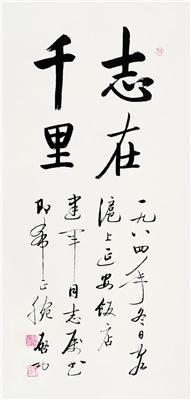 志在
千里
一九八四年冬日客
滬上延安飯店
建军同志属书
即希正腕 启功